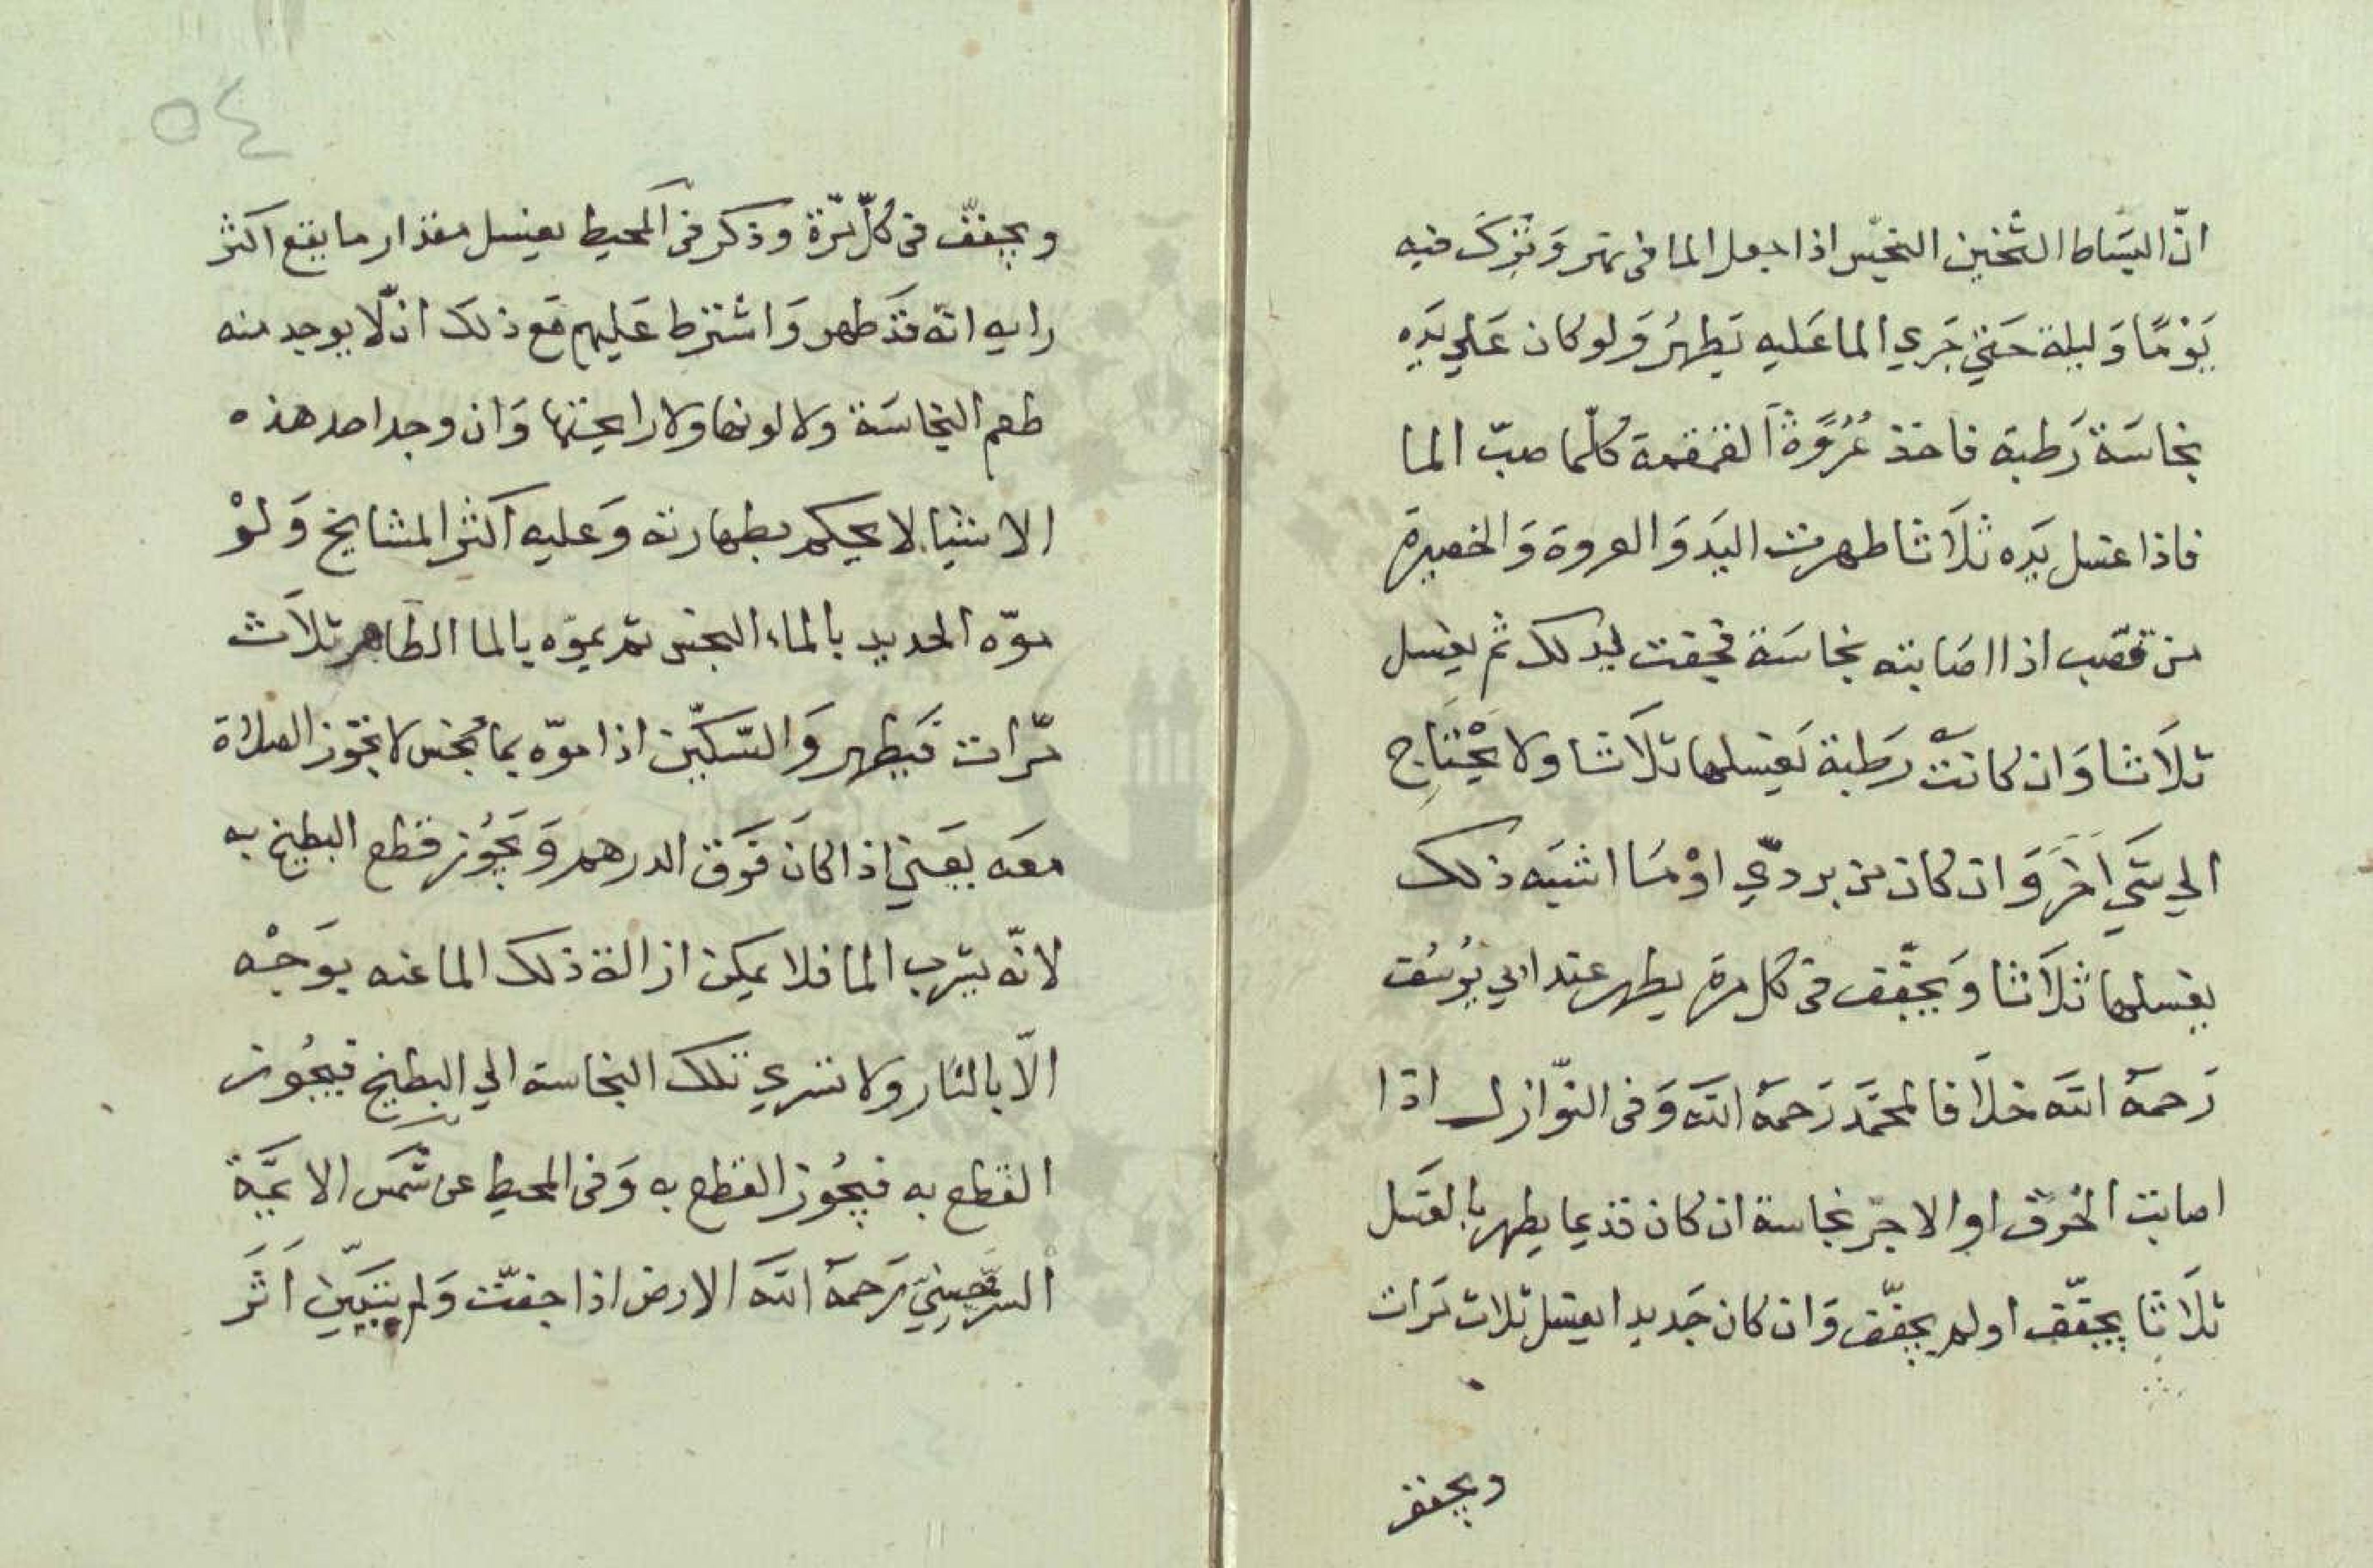 انّ البسَاط الثخين النجّس اذا جعل الما فى نهر وَتُرِكَ فيه
يَوْمًا وَليلة حَتي جَري الما عَليه يَطهرُ وَلو كان عَلي يَدِه
نجاسَة رَطبة فاخذ عُرُوَةً القمقمة كلّما صبّ الما
فاذا غسل يَده ثلاَثا طهرت اليَد وَالعروة وَالحَصيرة
من قصَب اذا اصَابته نجاسَة فجفت يدلك ثم يغسل
ثلاَثا وَان كانتْ رَطبة يَغسلها ثلاَثا ولا يَحْتَاج
الي شَي اَخَرَ وَان كان من بردّي اوْ مَا اشبَه ذلك
يغسلها ثلاَثا وَيجفّف فى كل مرة يطهر عند ابي يُوسُف
رَحمهُ اللّه خلاَفا لمحمَّد رَحمهُ اللّه وَفى النّوازل اذا
اصابت الخزَف او الاجرّ نجاسة ان كان قديما يطهر بالغَسل
ثلاَثا يجفّف او لم يجفّف وَان كان جَديدا يغسل ثلاث مَرات
ويجفف
٥٤
ويجفّف فى كلّ مرّة وذكر فى المحيط يغسل مقدار ما يقع اكثر
رايه انّه قدَ طهر وَاشترط عَليهم مَع ذلك ان لّا يوجد منه
طعم النجاسَة ولا لونها ولا رايحتها وَان وجد احد هذه
الاشيا لا يحكم بطهارته وَعليه اكثر المشايخ وَلوْ
موّه الحديد بالماء النجس ثم يموّه بالما الطّاهر ثلاَث
مرّات فيَطهر وَالسّكيّن اذا موّه بماَ نجس لا تجَوز الصلاة
معَه يعَني اذا كانَ فوَق الدرهم وَيَجُوز قطع البطيخ به
لانّه يشرب الما فلا يمكن ازالة ذلك الما عنه بوَجْه
الاّ بالنّار ولا تسري تلك النجاسة الي البطيخ فيجُوز
القطع به فيجُوز القطع به وَفى المحيط عن شمَس الايمَّة
السَّرخسِيّ رَحمهُ اللّه الارض اذا جفّت وَلم يتبيَّن اَثَر